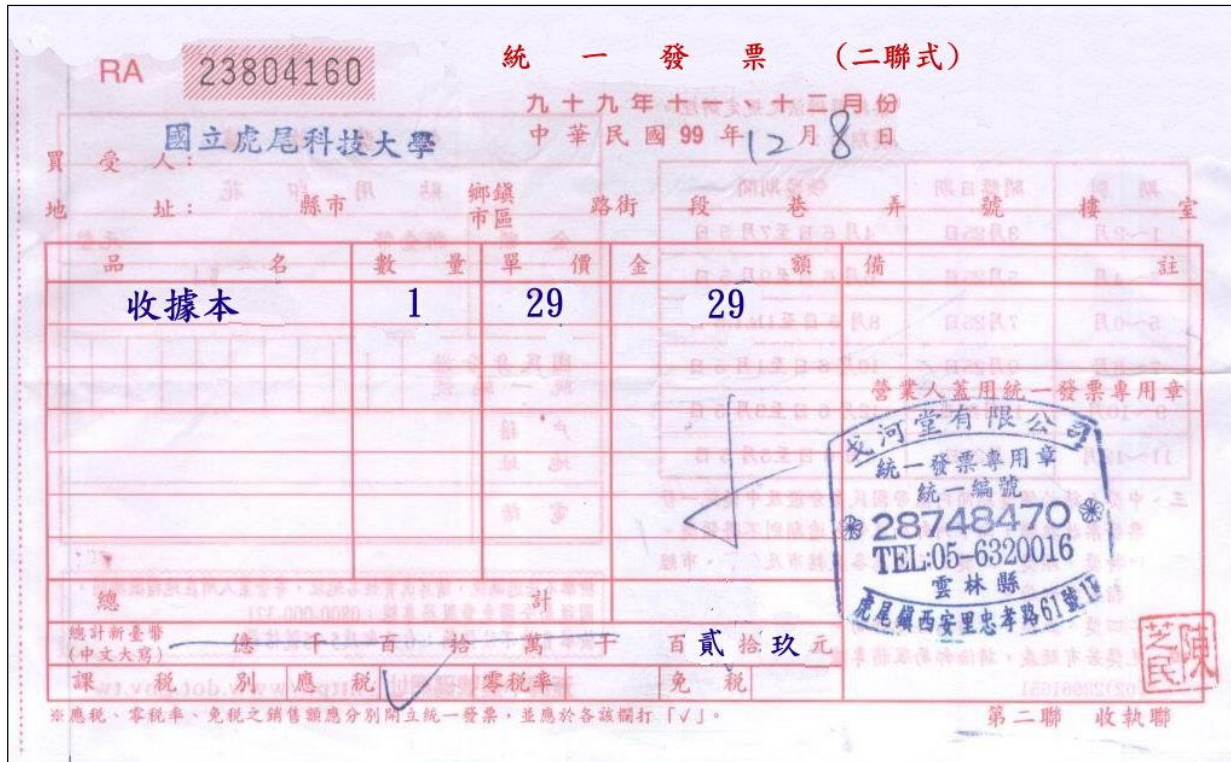 統一發票 (二聯式)
RA 23804160
九十九年十一、十二月份
中華民國99年12月8日
國立虎尾科技大學
買受人：
地址： 縣市 鄉鎮市區 路街 段 巷 弄 號 樓 室
品名 數量 單價 金額 備註
收據本 1 29 29
營業人蓋用統一發票專用章
戈河堂有限公司
統一發票專用章
統一編號
28748470
TEL:05-6320016
雲林縣
虎尾鎮西安里忠孝路61號1F
總計
總計新臺幣 (中文大寫) 億 千 百 拾 萬 千 百 貳 拾 玖 元
陳芝民
課稅別 應稅 √ 零稅率 免稅
※應稅、零稅率、免稅之銷售額應分別開立統一發票，並應於各該欄打「√」。
第二聯 收執聯